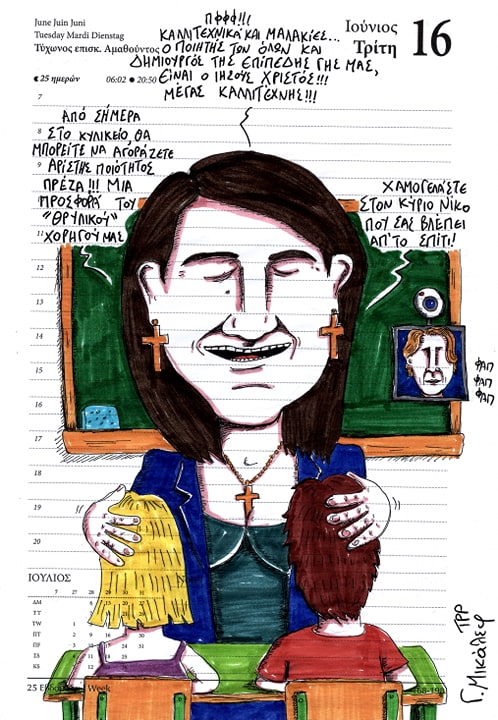 June Juin Juni
Tuesday Mardi Dienstag
Τύχωνος επισκ. Αμαθούντος
25 ημερών
06:02 ● 20:50
Ιούνιος
Τρίτη
16
ΠΦΦΦ!!!
ΚΑΛΛΙΤΕΧΝΙΚΑ ΚΑΙ ΜΑΛΑΚΙΕΣ...
Ο ΠΟΙΗΤΗΣ ΤΩΝ ΟΛΩΝ ΚΑΙ
ΔΗΜΙΟΥΡΓΟΣ ΤΗΣ ΕΠΙΠΕΔΗΣ ΓΗΣ ΜΑΣ,
ΕΙΝΑΙ Ο ΙΗΣΟΥΣ ΧΡΙΣΤΟΣ!!!
ΜΕΓΑΣ ΚΑΛΛΙΤΕΧΝΗΣ!!!
ΑΠΟ ΣΗΜΕΡΑ
ΣΤΟ ΚΥΛΙΚΕΙΟ, ΘΑ
ΜΠΟΡΕΙΤΕ ΝΑ ΑΓΟΡΑΖΕΤΕ
ΑΡΙΣΤΗΣ ΠΟΙΟΤΗΤΟΣ
ΠΡΕΖΑ!!! ΜΙΑ
ΠΡΟΣΦΟΡΑ ΤΟΥ
"ΘΡΥΛΙΚΟΥ"
ΧΟΡΗΓΟΥ ΜΑΣ
ΧΑΜΟΓΕΛΑΣΤΕ
ΣΤΟΝ ΚΥΡΙΟ ΝΙΚΟ
ΠΟΥ ΣΑΣ ΒΛΕΠΕΙ
ΑΠ' ΤΟ ΣΠΙΤΙ!
ΦΑΠ
ΦΑΠ
ΦΑΠ
7
8
9
11
12
13
14
15
16
17
18
19
20
ΙΟΥΛΙΟΣ
7 27 28 29 30 31
ΔΜ
ΤΤ
TW 1
ΠΤ 2
ΠF 3
ΣS 4
ΚS 5
25 Week
Γ. Μικάλεφ
ΤΡΡ